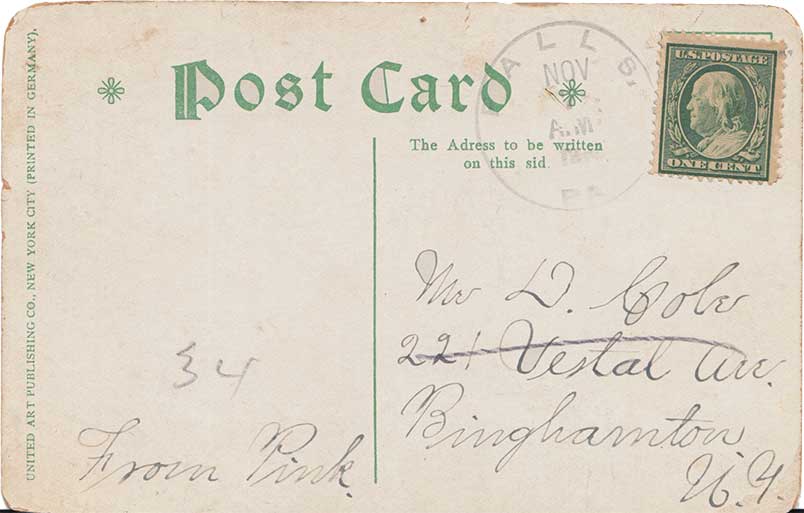 Post Card
The Adress to be written
on this sid.
FALLS,
NOV
A.M.
PA
U.S. POSTAGE
ONE CENT
UNITED ART PUBLISHING CO., NEW YORK CITY (PRINTED IN GERMANY).
34
From Pink.
Mr D. Cole
221 Vestal Ave.
Binghamton
N.Y.